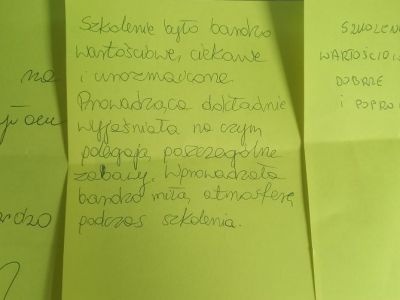 Szkolenie było bardzo
wartościowe, ciekawe
i urozmaicone.
Prowadząca dokładnie
wyjaśniała na czym
polegają poszczególne
zabawy. Wprowadzała
bardzo miłą atmosferę
podczas szkolenia.
na
SZKOLENI
WARTOŚCIOW
DOBRZE
I POPRO